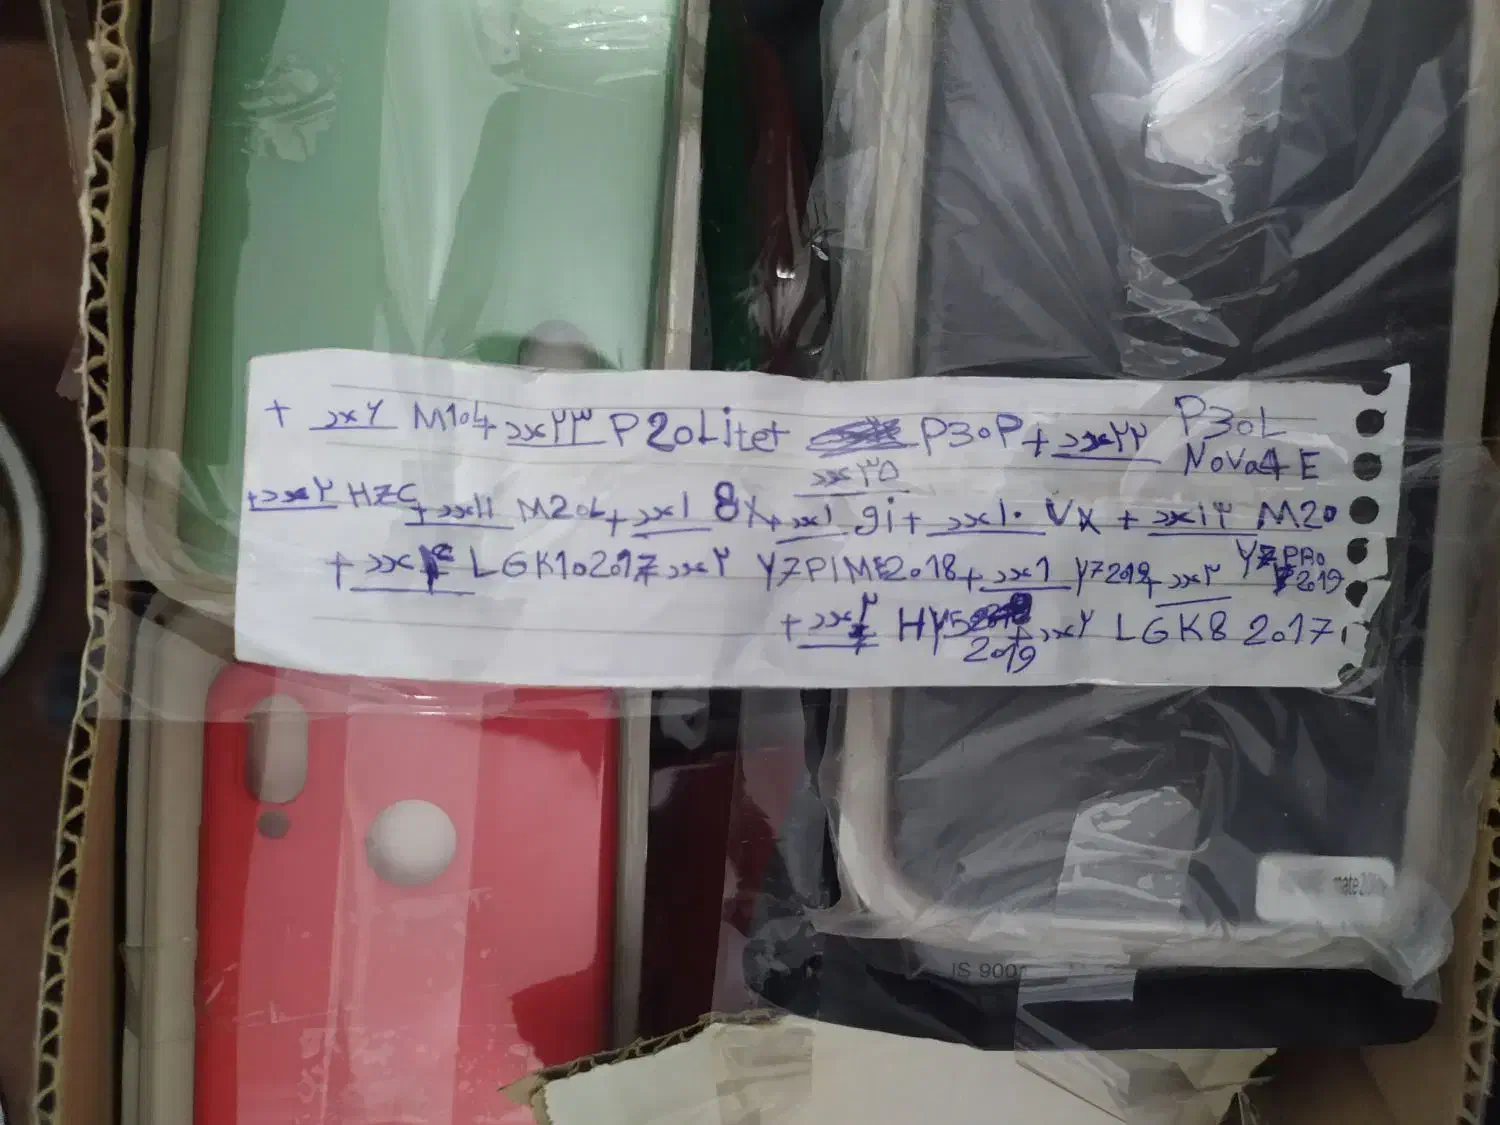 + عدد٢ M10L + عدد٢٣ P20Lite + P30P + عدد٢٢ P30L
عدد٣٥ NoVa4E
+ عدد٢ H7C + عدد١١ M20L + عدد١ 8X + عدد١ 9i + عدد١٠ VX + عدد١٣ M20
+ عدد LGK102017 + عدد٢ Y7PIME2018 + عدد١ Y72019 + عدد٣ Y7PRO
2019
+ عدد HY5 + عدد٢ LGK8 2017
2019
mate20
IS 900